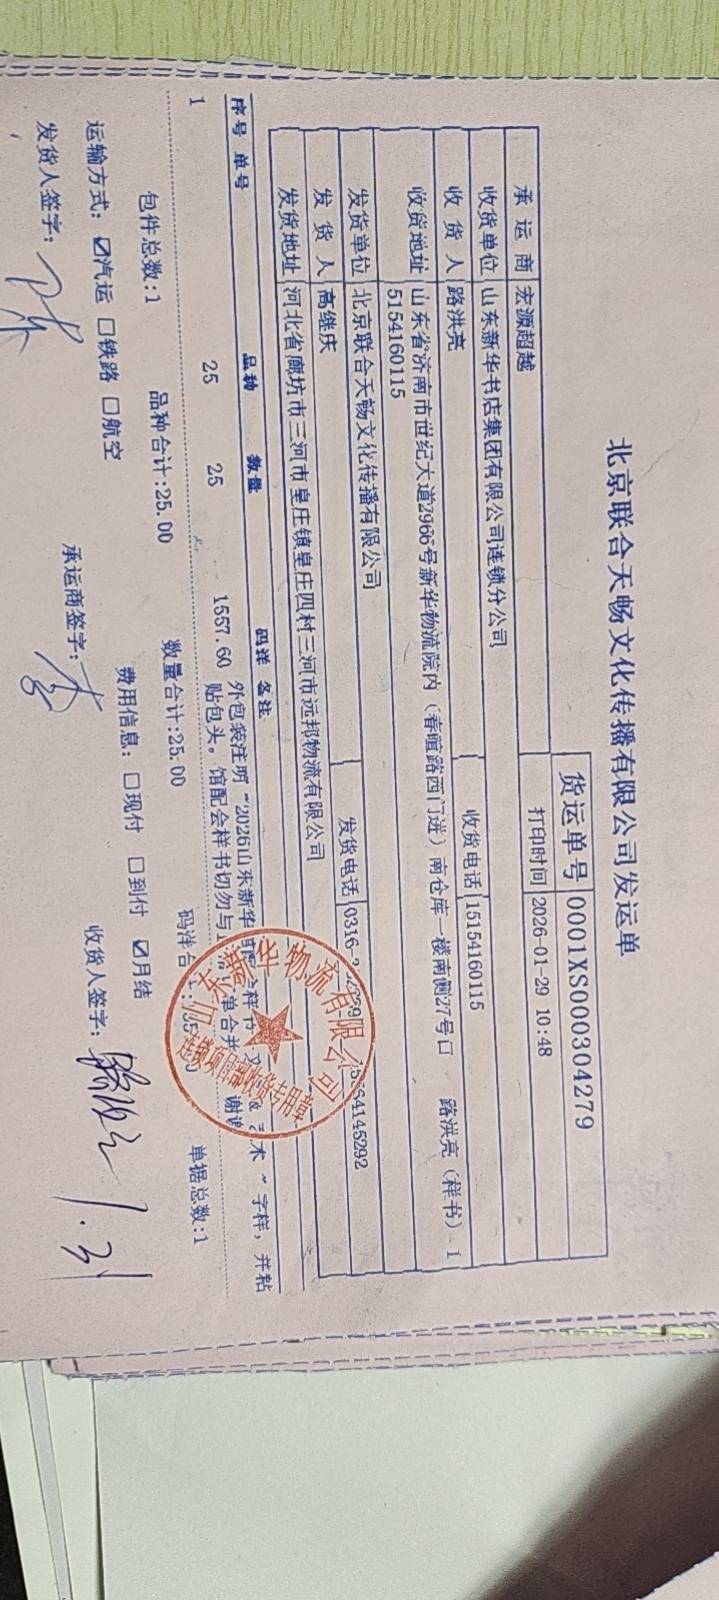 北京联合天畅文化传播有限公司发运单
货运单号 0001XS000304279
打印时间 2026-01-29 10:48
承运商 宏源超越
收货单位 山东新华书店集团有限公司连锁分公司
收货人 路洪亮 收货电话 15154160115
收货地址 山东省济南市世纪大道2966号新华物流院内（春暄路西门进）南仓库一楼南侧27号口 路洪亮（样书）-1
5154160115
发货单位 北京联合天畅文化传播有限公司
发货人 高继庆 发货电话 0316-
发货地址 河北省廊坊市三河市皇庄镇皇庄四村三河市远邦物流有限公司
序号 单号 品种 数量 码洋 备注
1 25 25 1557.60 外包装注明“2026山东新华 术”字样，并粘
贴包头。馆配会样书切勿与 单合并 谢谢
包件总数:1 品种合计:25.00 数量合计:25.00 码洋合 单据总数:1
运输方式： ☑汽运 □铁路 □航空 费用信息： □现付 □到付 ☑月结
发货人签字： 承运商签字： 收货人签字： 1.31
山东新华物流有限公司
连锁项目部收货专用章